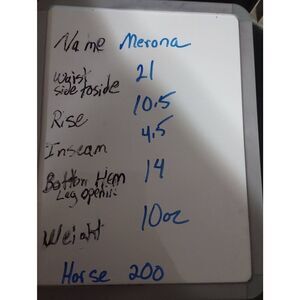 Name Merona
Waist 21
side to side
Rise 10.5
Inseam 4.5
Bottom Hem 14
Leg opening
Weight 10oz
Horse 200